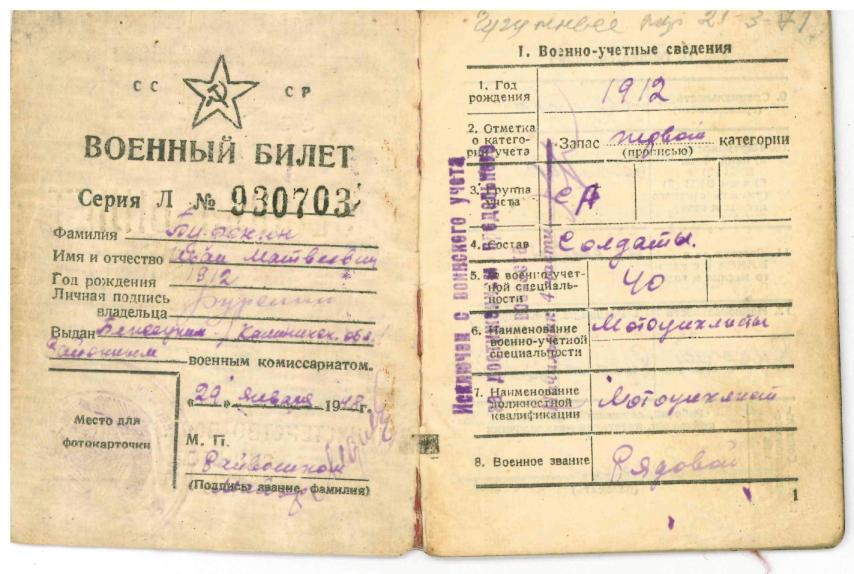 СС СР
ВОЕННЫЙ БИЛЕТ
Серия Л № 930703
Фамилия
Имя и отчество Иван Матвеевич
Год рождения 1912
Личная подпись
владельца
Выдан Калининск. обл.
Районным военным комиссариатом.
„29" января 1948 г.
Место для
фотокарточки
М. П.
Райвоенком
(Подпись, звание, фамилия)
21-3-71
1. Военно-учетные сведения
1. Год
рождения
1912
2. Отметка
о катего-
рии учета
Запас первой категории
(прописью)
3. Группа
учета
СА
4. Состав
Солдаты.
5. № военно-учет-
ной специаль-
ности
40
6. Наименование
военно-учетной
специальности
Мотоциклисты
7. Наименование
должностной
квалификации
Мотоциклист
8. Военное звание
Рядовой
Исключен с воинского учета
по достижении предельного
возраста
1